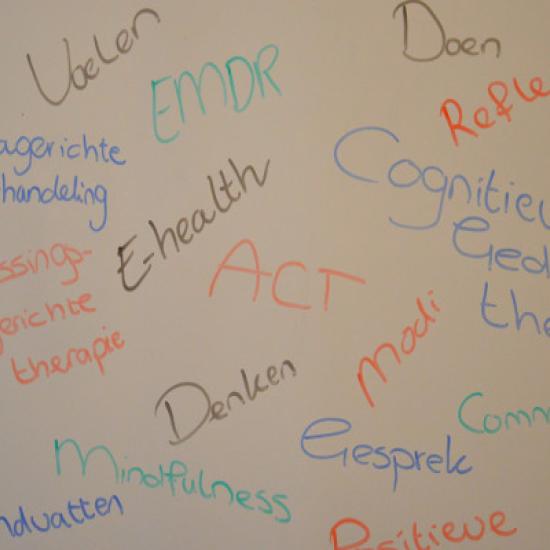 Voelen
Doen
EMDR
Refle
agerichte
handeling
Cognitiev
Ged
the
E-health
ssings-
erichte
therapie
ACT
Modi
Denken
Comm
Gesprek
Mindfulness
ndvatten
Positieve